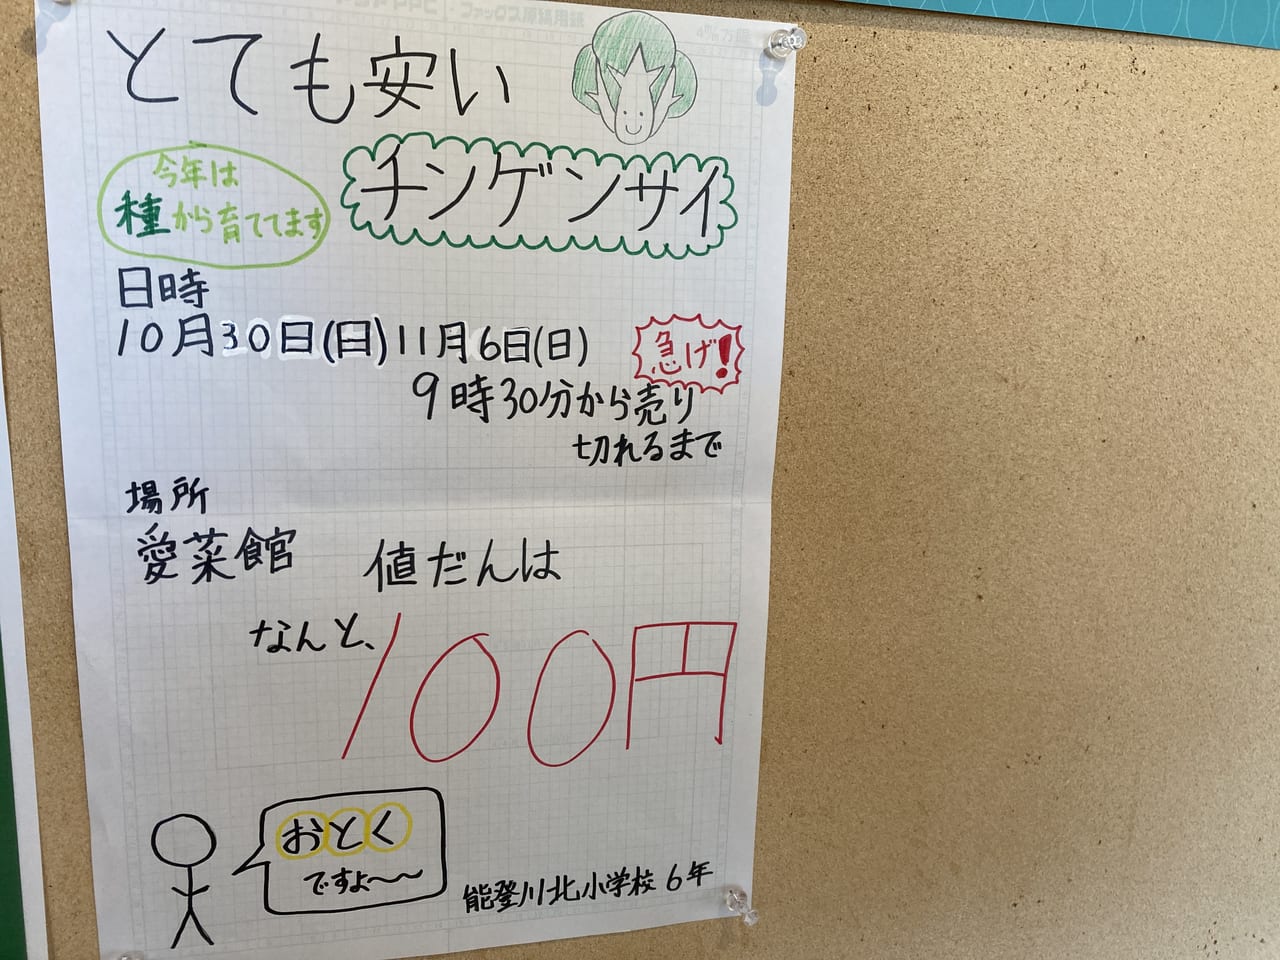 とても安い
今年は
種から育ててます
チンゲンサイ
日時
10月30日(日)11月6日(日)
急げ!
9時30分から売り
切れるまで
場所
愛菜館
値だんは
なんと、
100円
おとく
ですよ〜〜
能登川北小学校6年